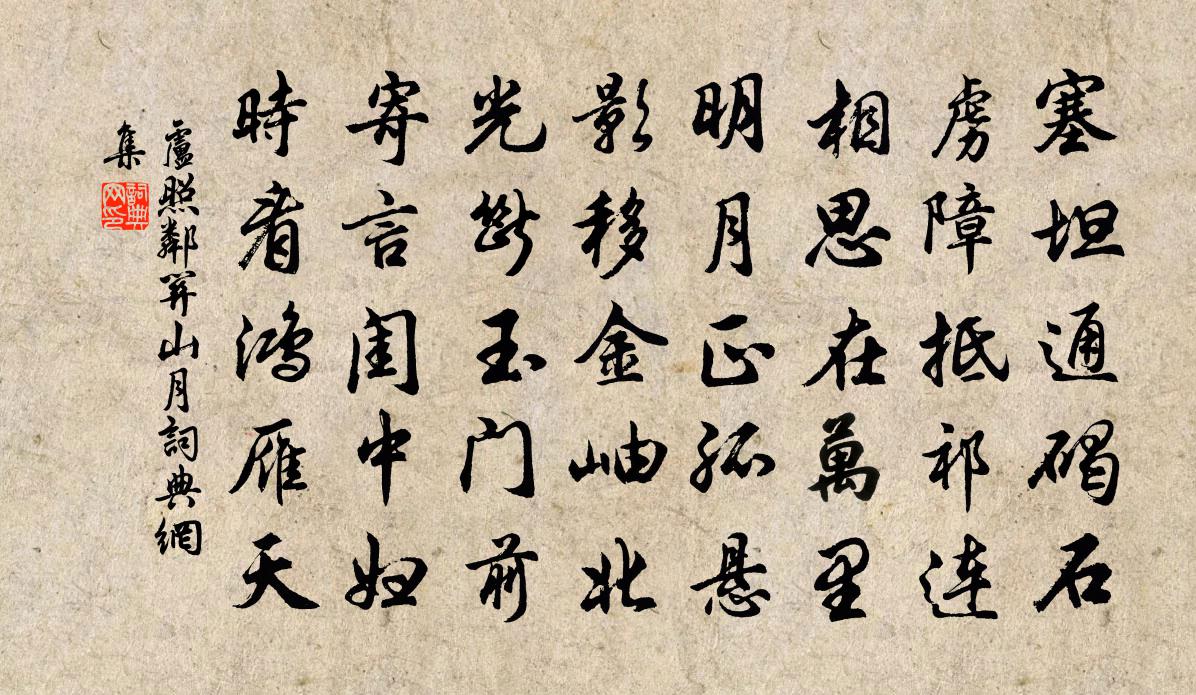 塞坦通碣石
虜障抵祁連
相思在萬里
明月正孤懸
影移金岫北
光斷玉門前
寄言閨中婦
時看鴻雁天
盧照鄰關山月詞典網
集
詞典
网印